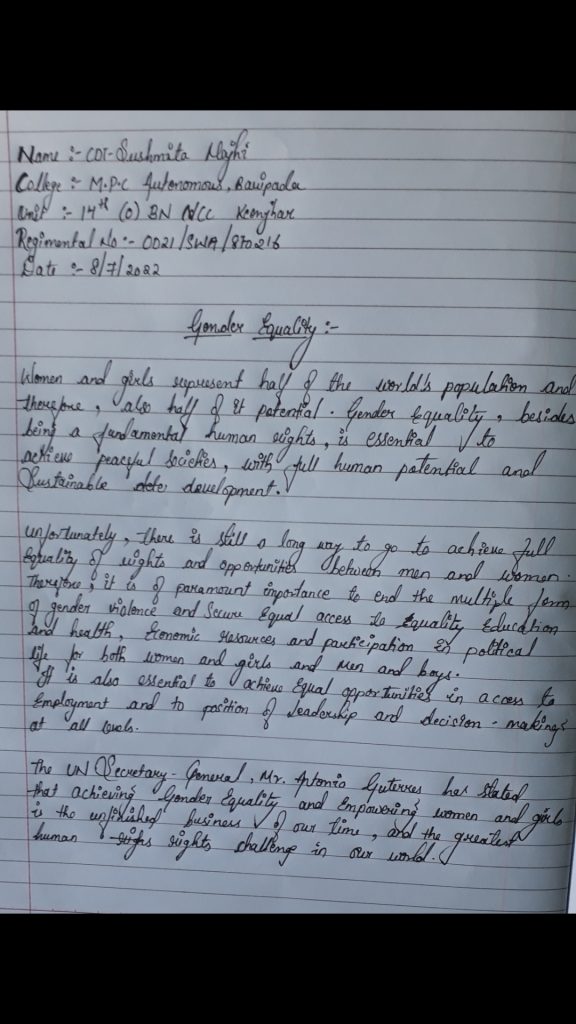 Name :- CDT- Sushmita Majhi
College :- M.P.C Autonomous, Baripada
Unit :- 14th (O) BN NCC Keonjhar
Regimental No :- OD21/SWA/870216
Date :- 8/7/2022
Gender Equality :-
Women and girls represent half of the world's population and
therefore, also half of it potential. Gender Equality, besides
being a fundamental human rights, is essential to
achieve peaceful societies, with full human potential and
Sustainable development.
Unfortunately, there is still a long way to go to achieve full
Equality of rights and opportunities between men and women.
Therefore, it is of paramount importance to end the multiple form
of gender violence and Secure Equal access to Equality Education
and health, Economic resources and participation in political
life for both women and girls and Men and boys.
It is also essential to achieve Equal opportunities in access to
Employment and to position of leadership and decision-makings
at all levels.
The UN Secretary-General, Mr. Antonio Guterres has stated
that achieving Gender Equality and Empowering women and girls
is the unfinished business of our time, and the greatest
human rights challenge in our world.